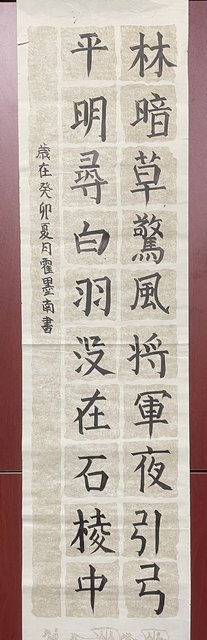 林暗草驚風将軍夜引弓
平明尋白羽没在石棱中
歳在癸卯夏月霍墨南書